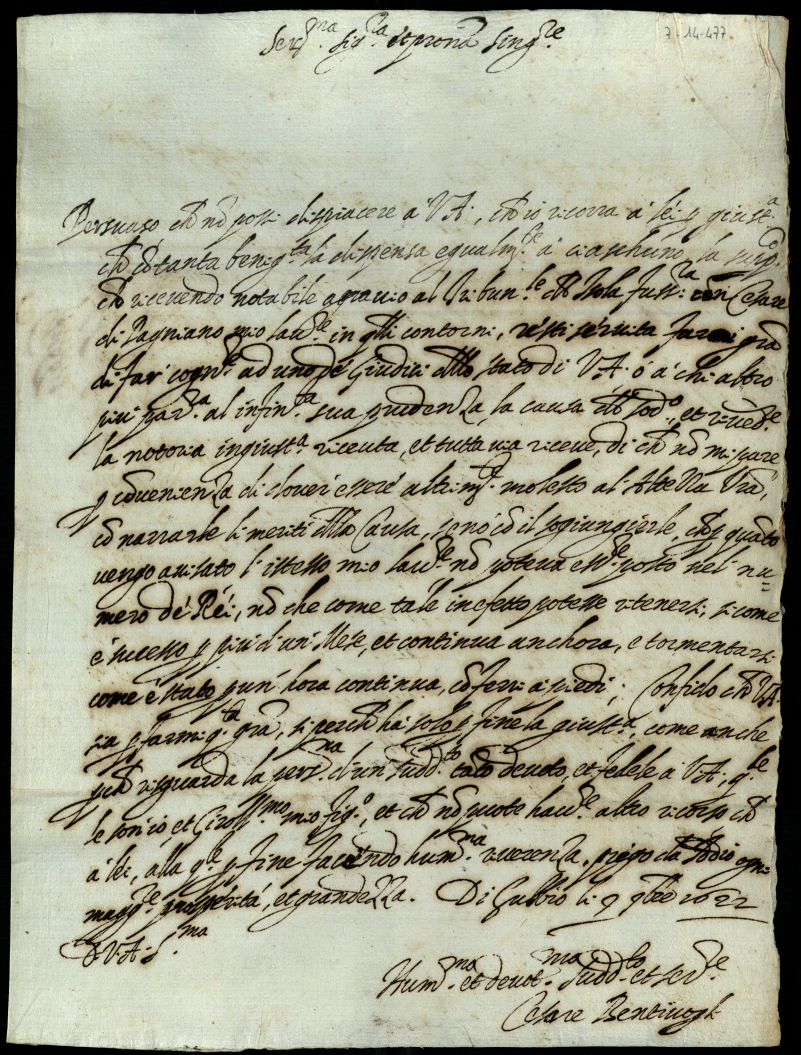 7-14-477
Ser.ma Sig.ra et prona Sing.re
Persuaso ch nō poss. dispiacere à V.A., ch io ricorra à lei p giust.a
ch cō tanta benig.tà la dispensa egualm.te à ciaschuno, la sup.co
ch ricevendo notabile agravio al Tribun.le dll Isola Cesare
di Pagniano mio lav.re in qlli contorni, resti servita farmi grā
di far cogn.re ad uno de Giudici dllo stato di V.A. ò à chi altro
più par.rà al infin.ta sua prudenza, la causa dll sod.o, et rived.re
la notoria ingiust.a ricevuta, et tutta via riceve, di ch nō mi pare
p cōvenienza di dover essere altrim.te molesto al Altezza Vrā,
cō narrarle li meriti dlla Causa, se nō cō il sogiungierle, ch p quāto
vengo avisato l'istesso mio lav.re nō poteva ess.re posto nel nu=
mero de Rei, nō che come tale in efetto potesse ritenersi, si come
è sucesso p più d'un Mese, et continua anchora, e tormentarsi
come è stato p un' hora continua, cō ferri à piedi; Confido ch V.A.
sia p farmi q.ta grā, si perch ha solo p fine la giust.a, come anche
pch risguarda la pers.na d'un sudd.to tāto devoto, et fedele à V.A., q.le
le son io, et mio fig.o, et ch nō puote hav.re altro ricorso ch
à lei, alla q.le p fine facēdo hum.ma riverenza, priego da Iddio ogni
magg.re prosperità, et grandezza. Di Gubbio li 9 9bre 1622
D V.A. S.ma
Hum.ma et devot.ma sudd.to et ser.re
Cesare Bentivogli